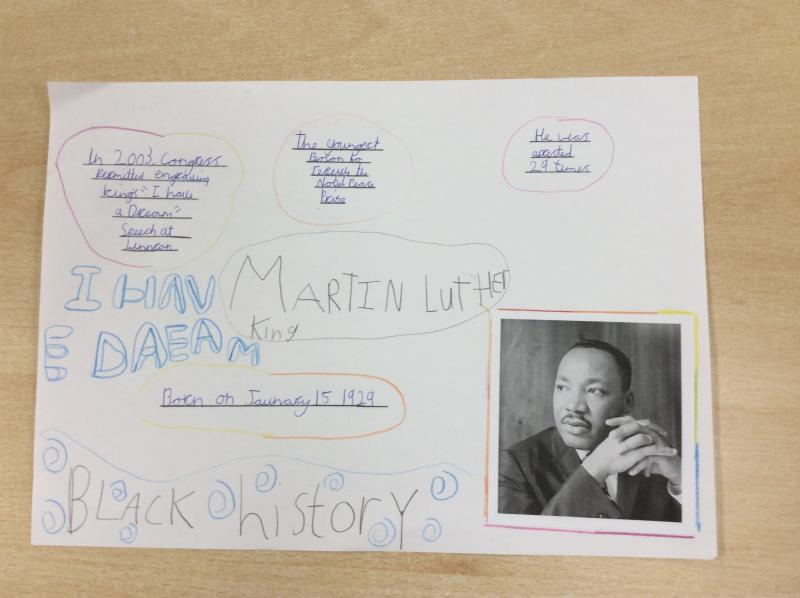 In 2003, Congress
permitted engraving
kings "I have
a Dream"
Speech at
The youngest
Person to
the
Nobel Peace
He was
arrested
29 times
I HAV
E DAEAM
MARTIN LUTHER
King
Born on January 15 1929
BLACK history